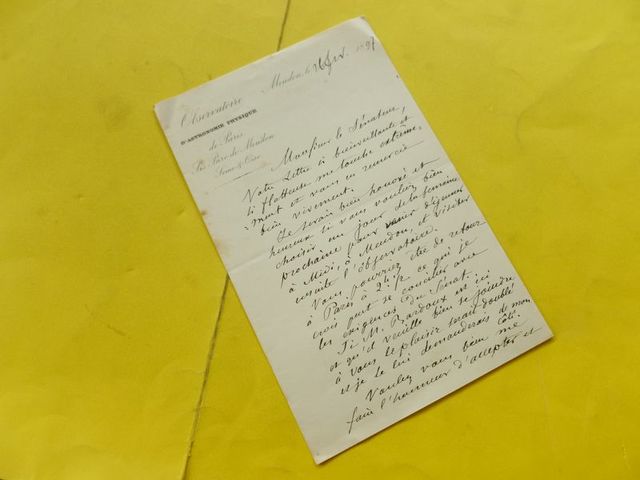 Observatoire
D'ASTRONOMIE PHYSIQUE
de Paris
Sis Parc de Meudon
Seine & Oise
Meudon, le 1897
Monsieur le Sénateur,
Votre Lettre si bienveillante et
si flatteuse me touche extrême-
-ment et vous en remercie
bien vivement.
Je serais bien honoré et
heureux si vous vouliez bien
choisir un jour de la semaine
prochaine pour venir déjeuner
à Midi, à Meudon, et visiter
ensuite l'Observatoire.
Vous pourriez être de retour
à Paris à 2h 1/2 ce qui je
crois peut se concilier avec
les exigences du Sénat.
Si M. Bardoux est ici
et qu'il veuille bien se joindre
à vous le plaisir serait doublé
et je le lui demanderais de mon
côté.
Veuillez vous bien me
faire l'honneur d'accepter et